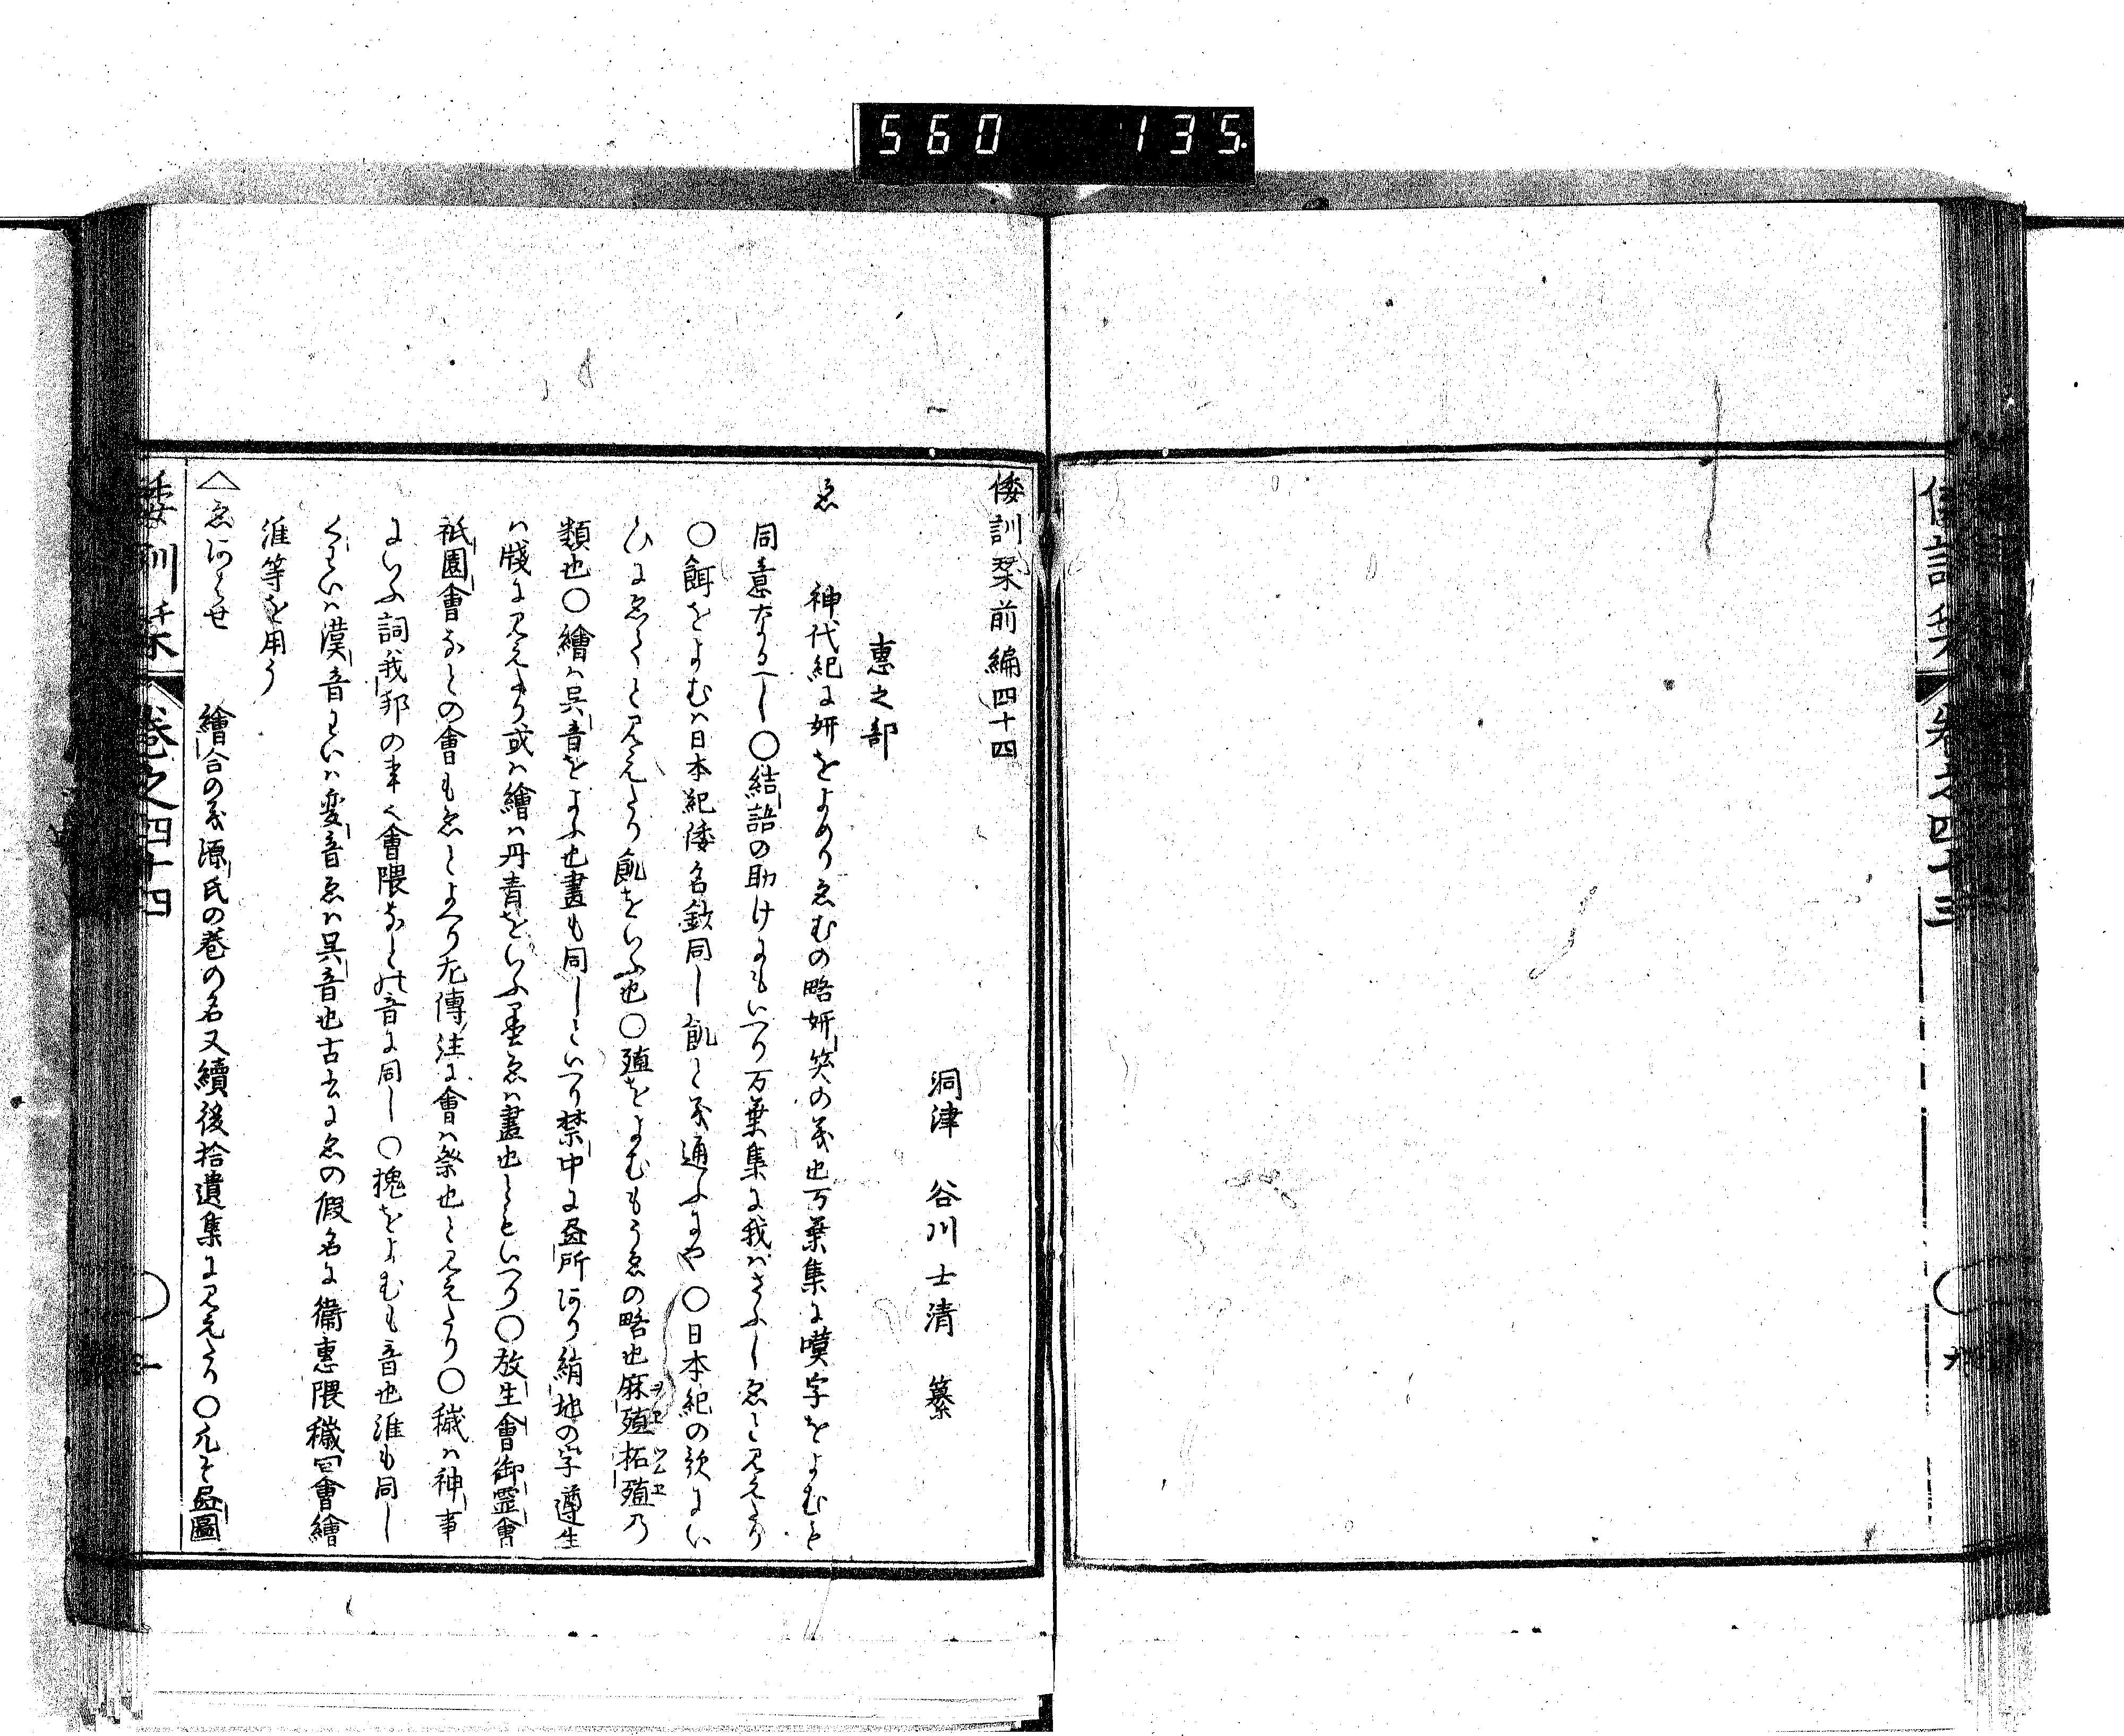 560 135
倭訓栞 巻之四十三
倭訓栞前編四十四
洞津 谷川士清 纂
恵之部
ゑ 神代紀に妍をよめりゑむの略妍笑の義也万葉集に㗘字をよむも
同意なるへし〇結語の助けにもいへり万葉集に我はさふしゑと見えたり
〇餌をよむは日本紀倭名鈔同し飢と義通ふにや〇日本紀の歌にい
ひにゑてと見えたり飢をいふ也〇殖をよむもうゑの略也麻殖拓殖乃
類也〇繪は呉音をよふ也畫も同しといへり禁中に畫所あり絹地の字遵生
八牋に見えたり或は繪は丹青をいふ墨ゑは畫也ともいへり〇放生會御霊會
祇園會なとの會もゑとよへり左傳注に會は祭也と見えたり〇穢は神事
にいふ詞我邦の牟く會隈なと此音に同し〇槐をよむも音也淮も同し
くわいは漢音わいは変音ゑは呉音也古書にゑの假名に衞惠隈穢囘會繪
淮等を用う
ゑあはせ 繪合の義源氏の巻の名又續後拾遺集に見えたり〇凡そ畫圖
倭訓栞 巻之四十四 一